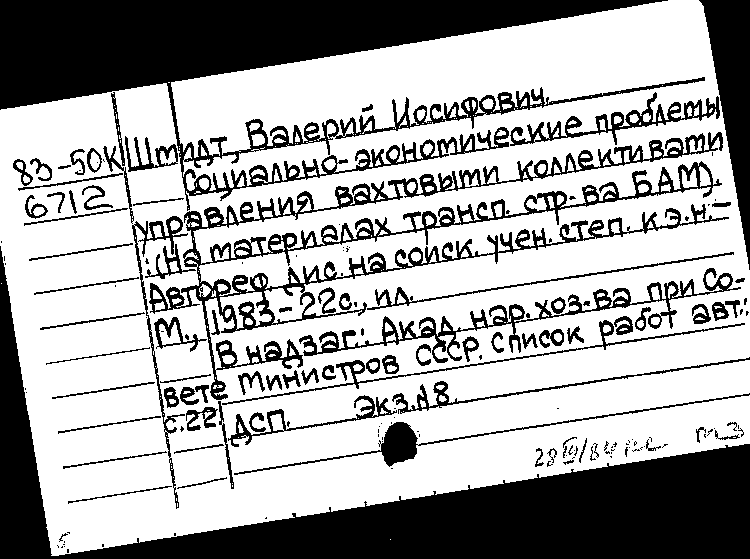 83-50К Шмидт, Валерий Иосифович.
6712 Социально-экономические проблемы
управления вахтовыми коллективами
: (На материалах трансп. стр-ва БАМ).
Автореф. дис. на соиск. учен. степ. к.э.н. –
М., 1983. – 22с., ил.
В надзаг.: Акад. нар. хоз-ва при Со-
вете Министров СССР. Список работ авт.:
с.22.
ДСП. Экз.№8.
28 /84
5